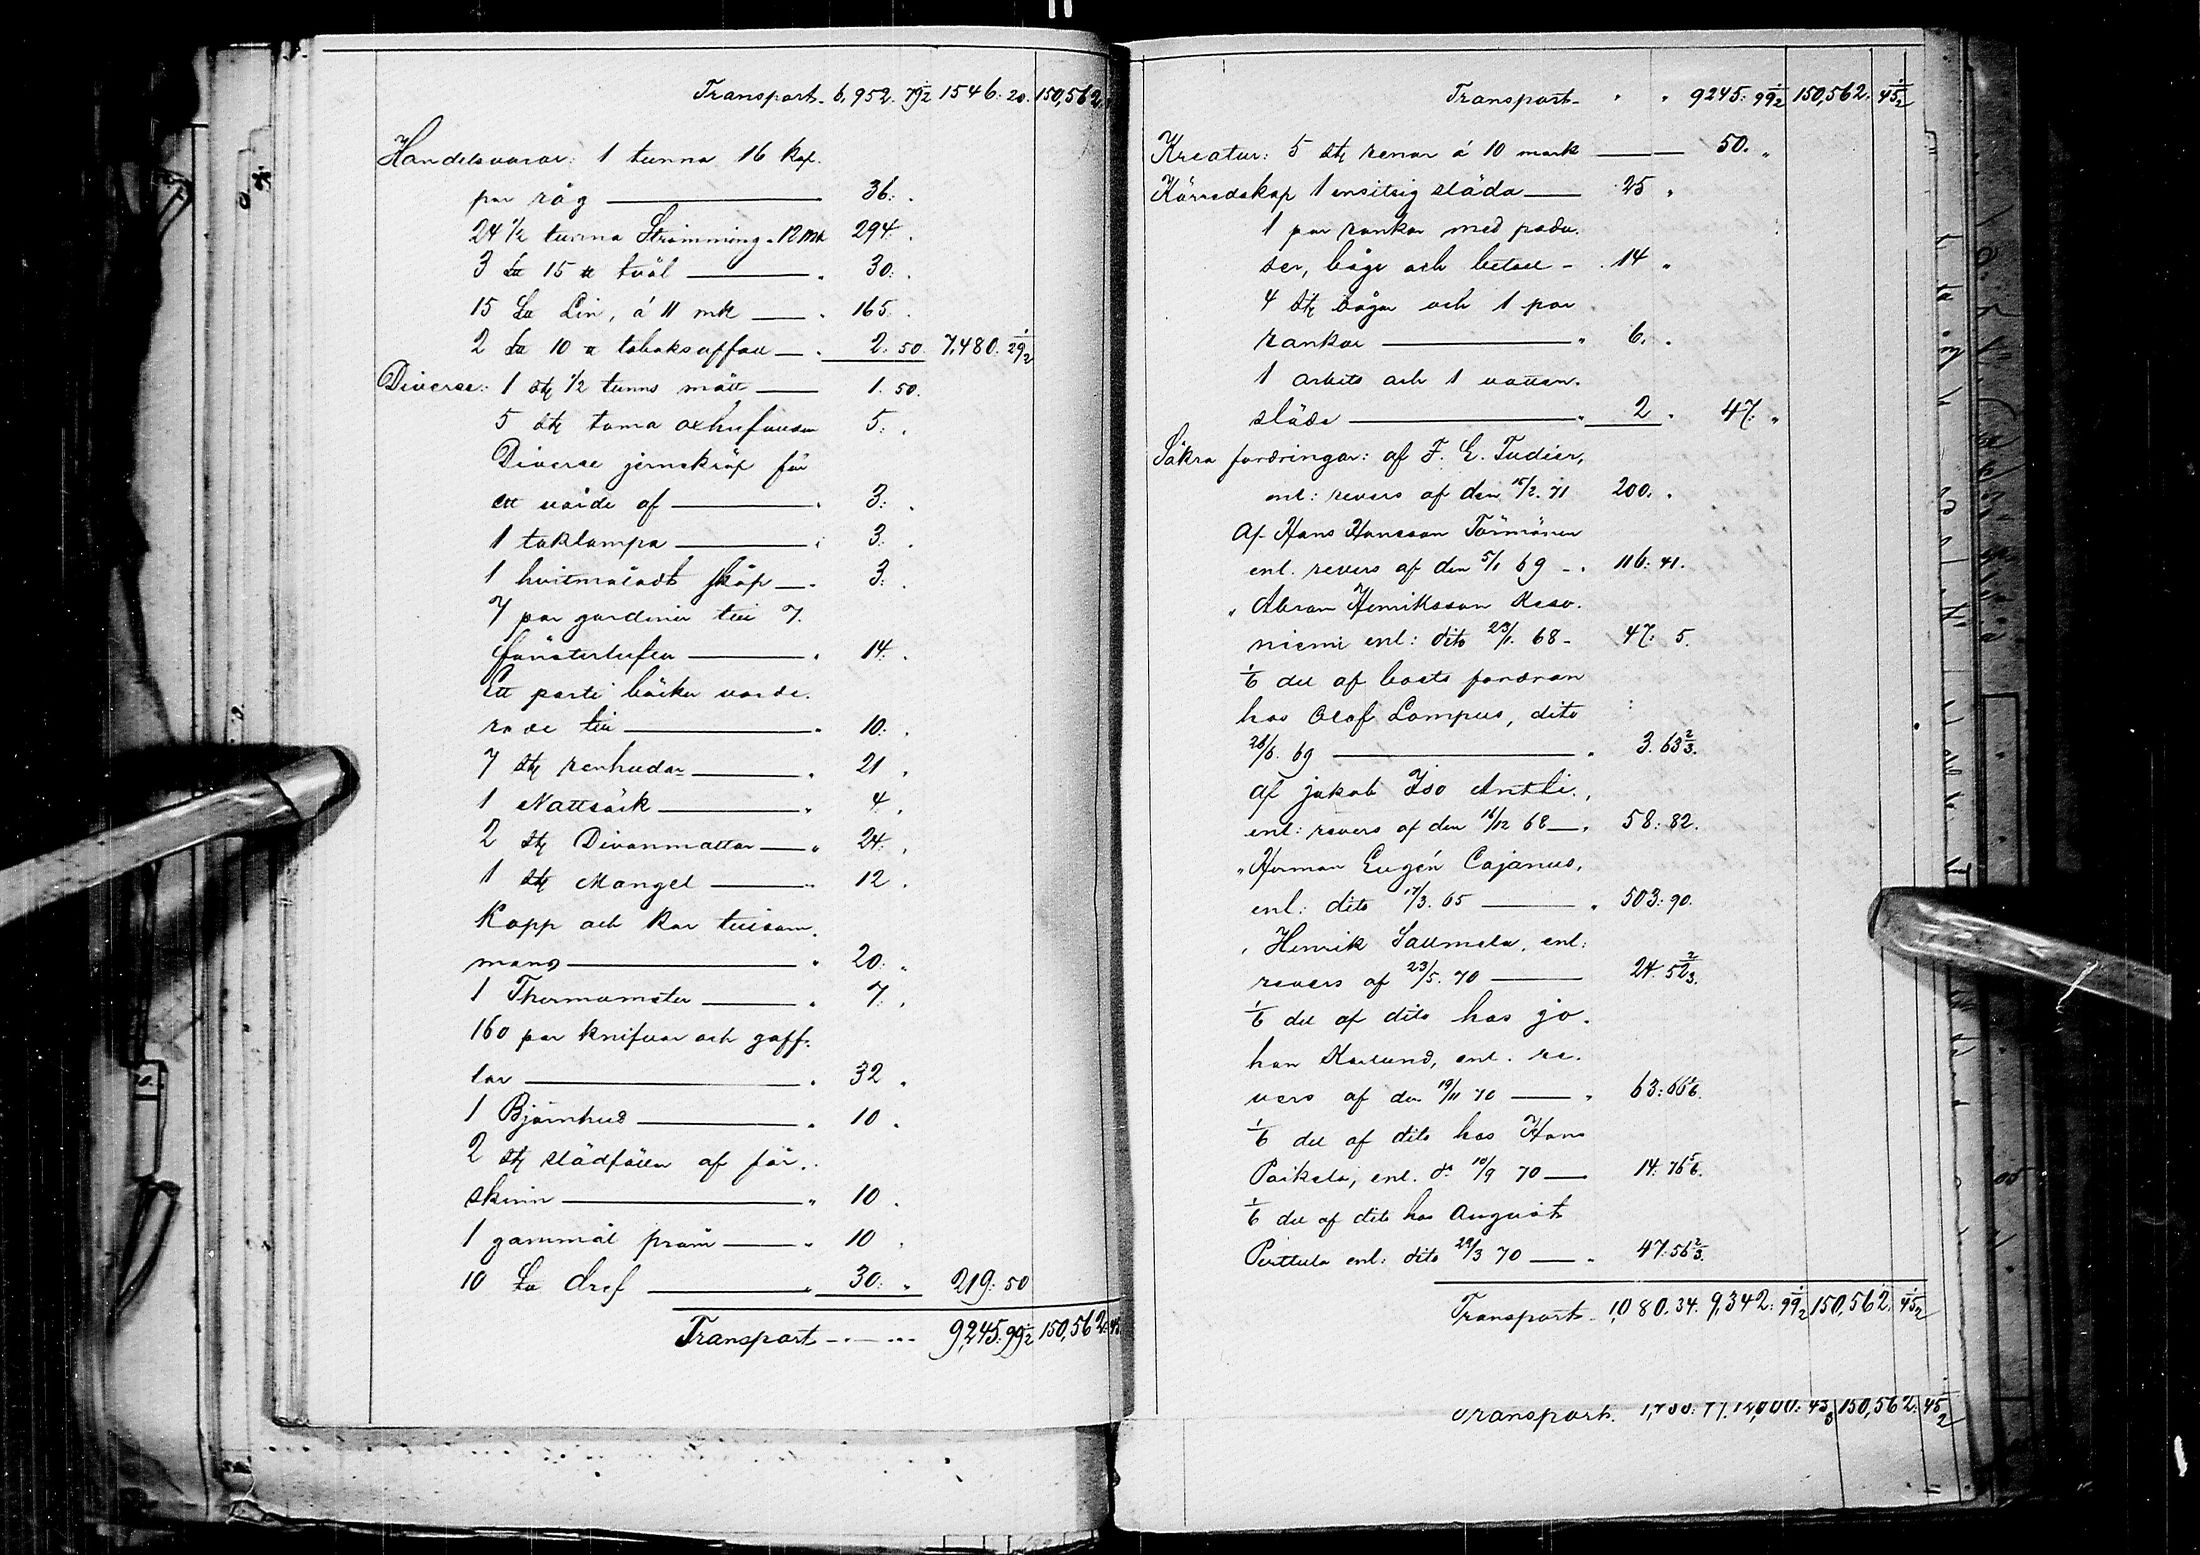 Transport. 6,952. 79½ 1546. 20. 150,562.
Handelsvaror: 1 tunna 16 kap.
par råg 36. .
24 ½ tunna Strömming . 12 mk 294 .
3 L℔ 15 ℔ tvål . 30. .
15 L℔ Lin, á 11 mk . 165. .
2 L℔ 10 ℔ tobaksaffall . 2. 50. 7,480. 29½
Diverse: 1 stk ½ tunns mått 1. 50.
5 stk toma oxhufvuden 5. .
Diverse jernskräp för
ett värde af . 3. .
1 taklampa . 3. .
1 hvitmåladt skåp . 3. .
7 par gardiner till 7.
fönsterlufter . 14. .
Ett parti böcker värde.
rade till . 10. .
7 stk renhudar . 21 .
1 Nattsäck . 4 .
2 stk Divanmattor . 24. .
1 stk Mangel . 12 .
Kopp och kar tillsam.
mans . 20. .
1 Thermometer . 7. .
160 par knifvar och gaff.
lar . 32 .
1 Björnhud . 10 .
2 stk slädfällar af får.
skinn . 10 .
1 gammal pråm . 10 .
10 L℔ dref . 30. . 219. 50
Transport 9,245. 99½ 150,562. 45
Transport . . 9245. 99½ 150,562. 45½
Kreatur: 5 stk renar á 10 mark 50. „
Körredskap 1 ensitsig släda 25 „
1 par rankor med
ser, båge och betsel . 14 „
4 stk bågar och 1 par
rankor . 6. .
1 arbets och 1 vatten.
släde . 2 . 47. „
Säkra fordringar: af F. E. Tudeer,
enl: revers af den 15/2. 71 200. .
Af Hans Hansson Törmänen
enl. revers af den 5/1 69 . 116. 41.
„ Abram Henriksson Keso.
niemi enl: dito 23/1. 68 47. 5.
1/6 del af boets fordran
hos Olof Lampus, dito
28/6. 69 . 3. 63⅔.
af Jakob Iso Antti.,
enl: revers af den 16/12 68 . 58: 82.
„ Herman Eugén Cajanus,
enl: dito 17/3. 65 . 503: 90.
„ Henrik Saumela, enl:
revers af 23/5. 70 24. 52⅔.
1/6 del af dito hos Jo.
han Karlund, enl. re.
vers af den 19/11 70 . 63: 66 1/6.
1/6 del af dito hos Hans
Paikela, enl. d:o 10/9 70 14: 76 5/6.
1/6 del af dito hos August
Perttula enl: dito 29/3 70 . 47: 56⅔.
Transport 1,080. 34. 9,342: 99½ 150,562. 45½
Transport. 150,562: 45½